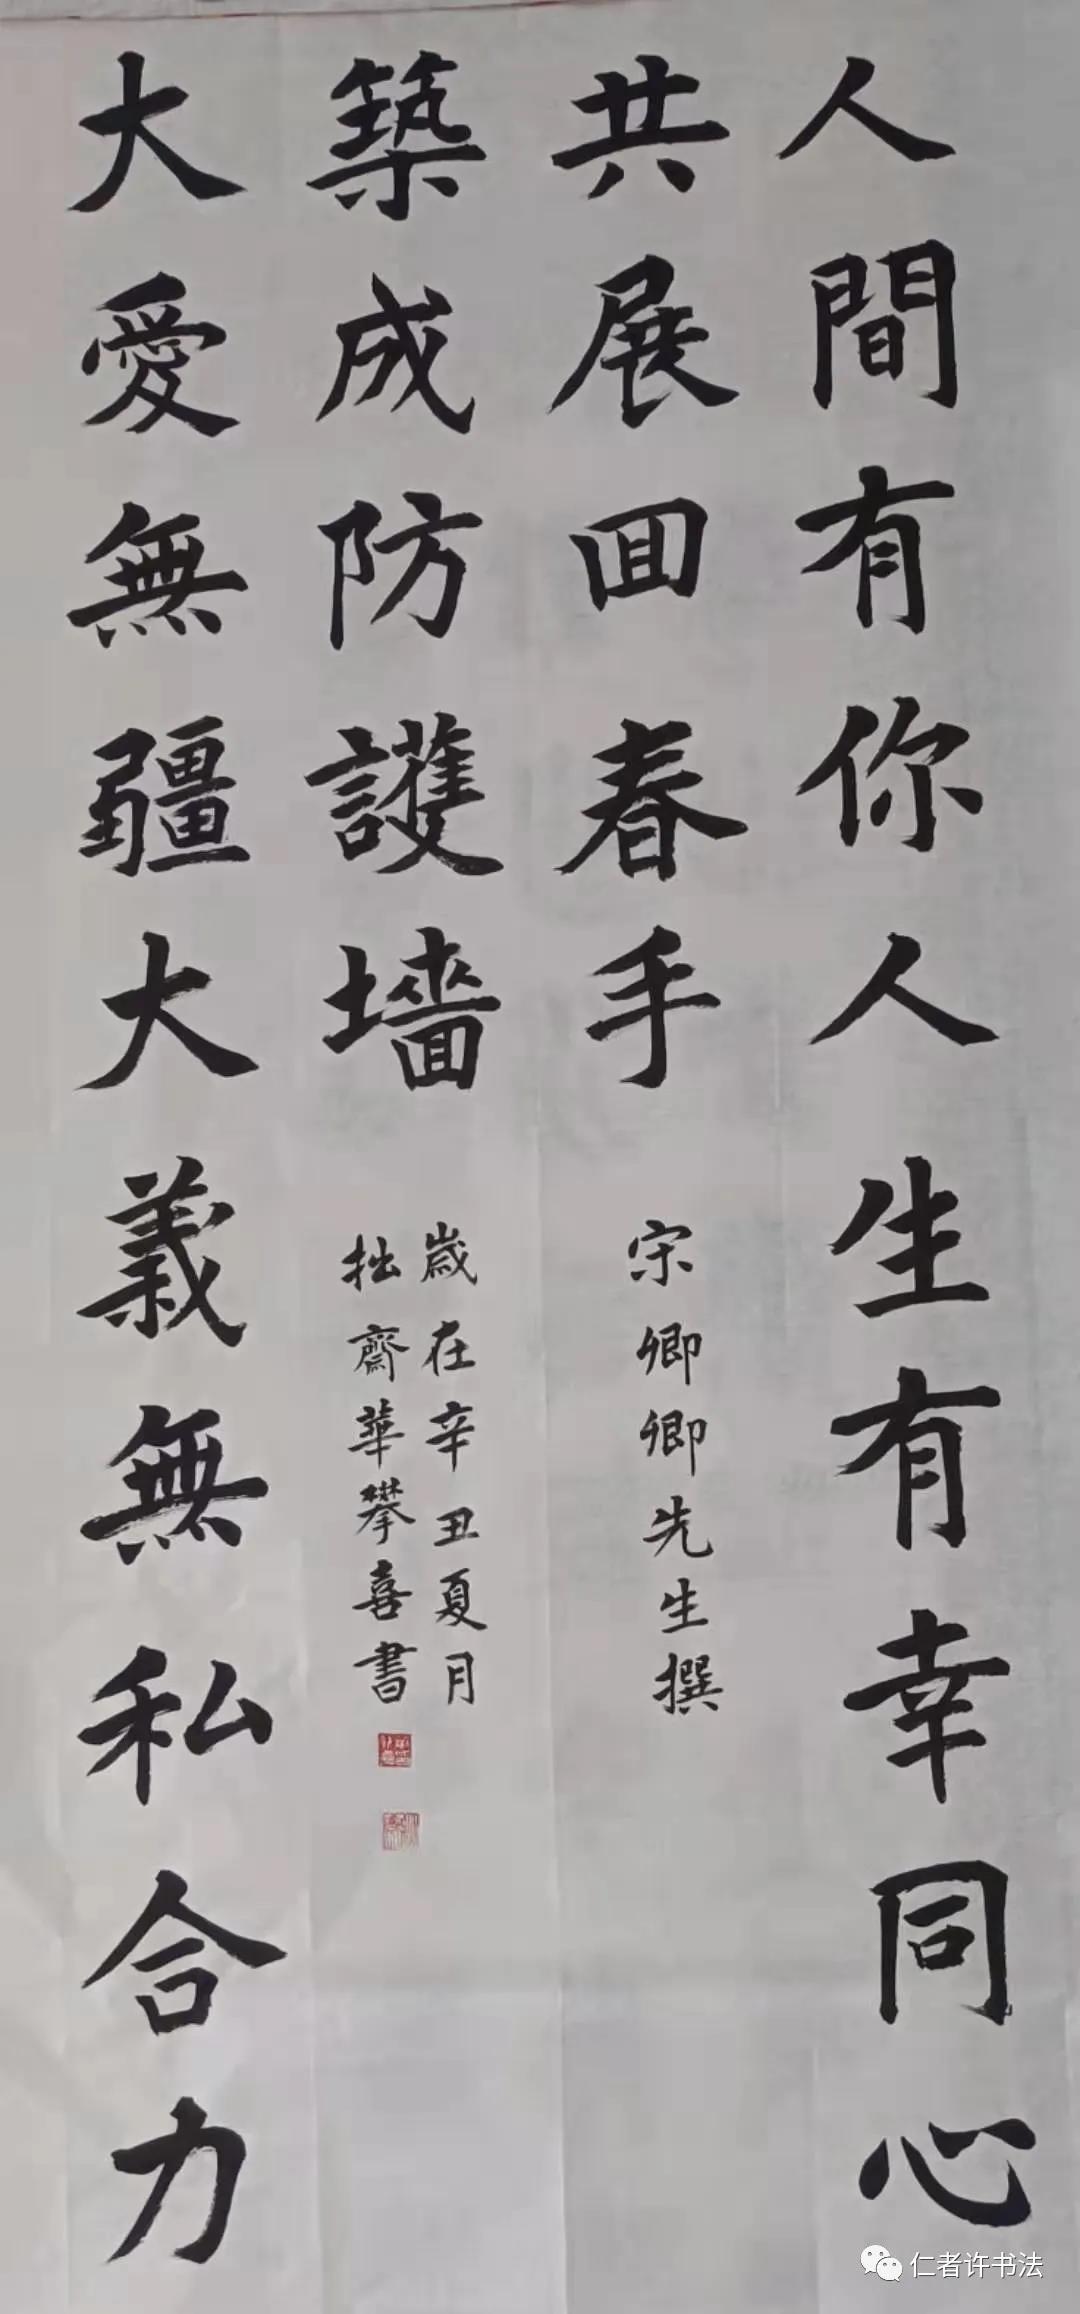 人間有你人生有幸同心
共展回春手
宋卿卿先生撰
大愛無疆大義無私合力
築成防護墻
歲在辛丑夏月
拙齋華攀喜書
仁者许书法